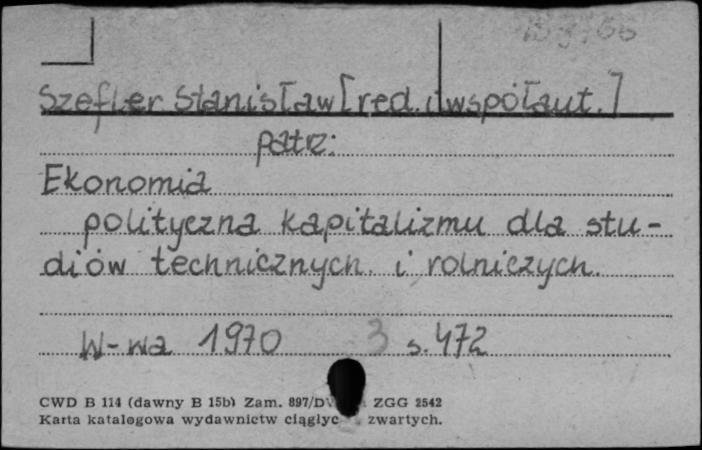 Szefler Stanisław [red. i współaut.]
patrz:
Ekonomia
polityczna kapitalizmu dla stu-
diów technicznych i rolniczych.
W-wa 1970 3 s. 472
CWD B 114 (dawny B 15b) Zam. 897/ ZGG 2542
Karta katalogowa wydawnictw zwartych.